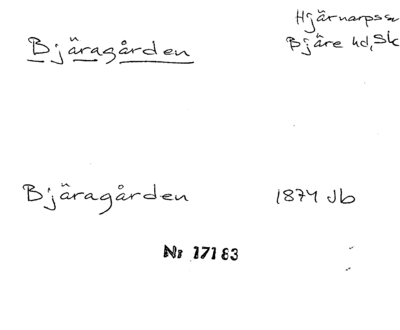 Hjärnarpssn
Bjäragården Bjäre hd, Sk
Bjäragården 1874 Jb
Nr 17183